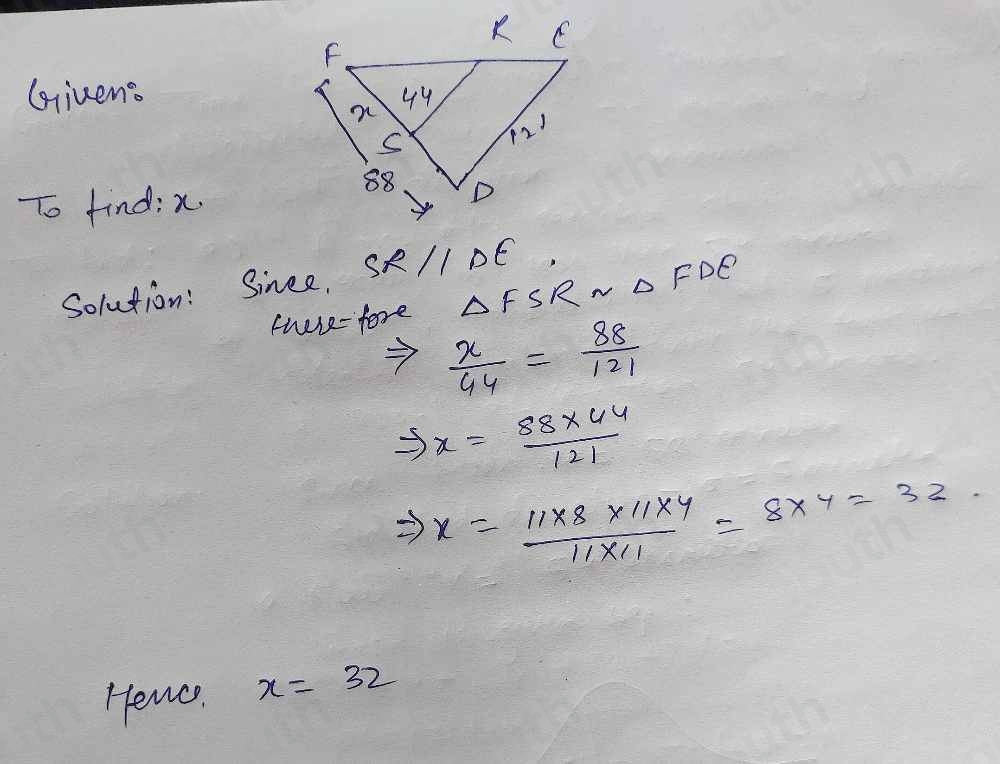 Given:
F
R
E
x
44
S
121
88
D
To find: x.
Solution: Since, SR // DE .
therefore △ FSR ~ △ FDE
⇒ x/44 = 88/121
⇒ x = 88×44/121
⇒ x = 11×8 ×11×4/11×11 = 8×4 = 32 .
Hence, x = 32